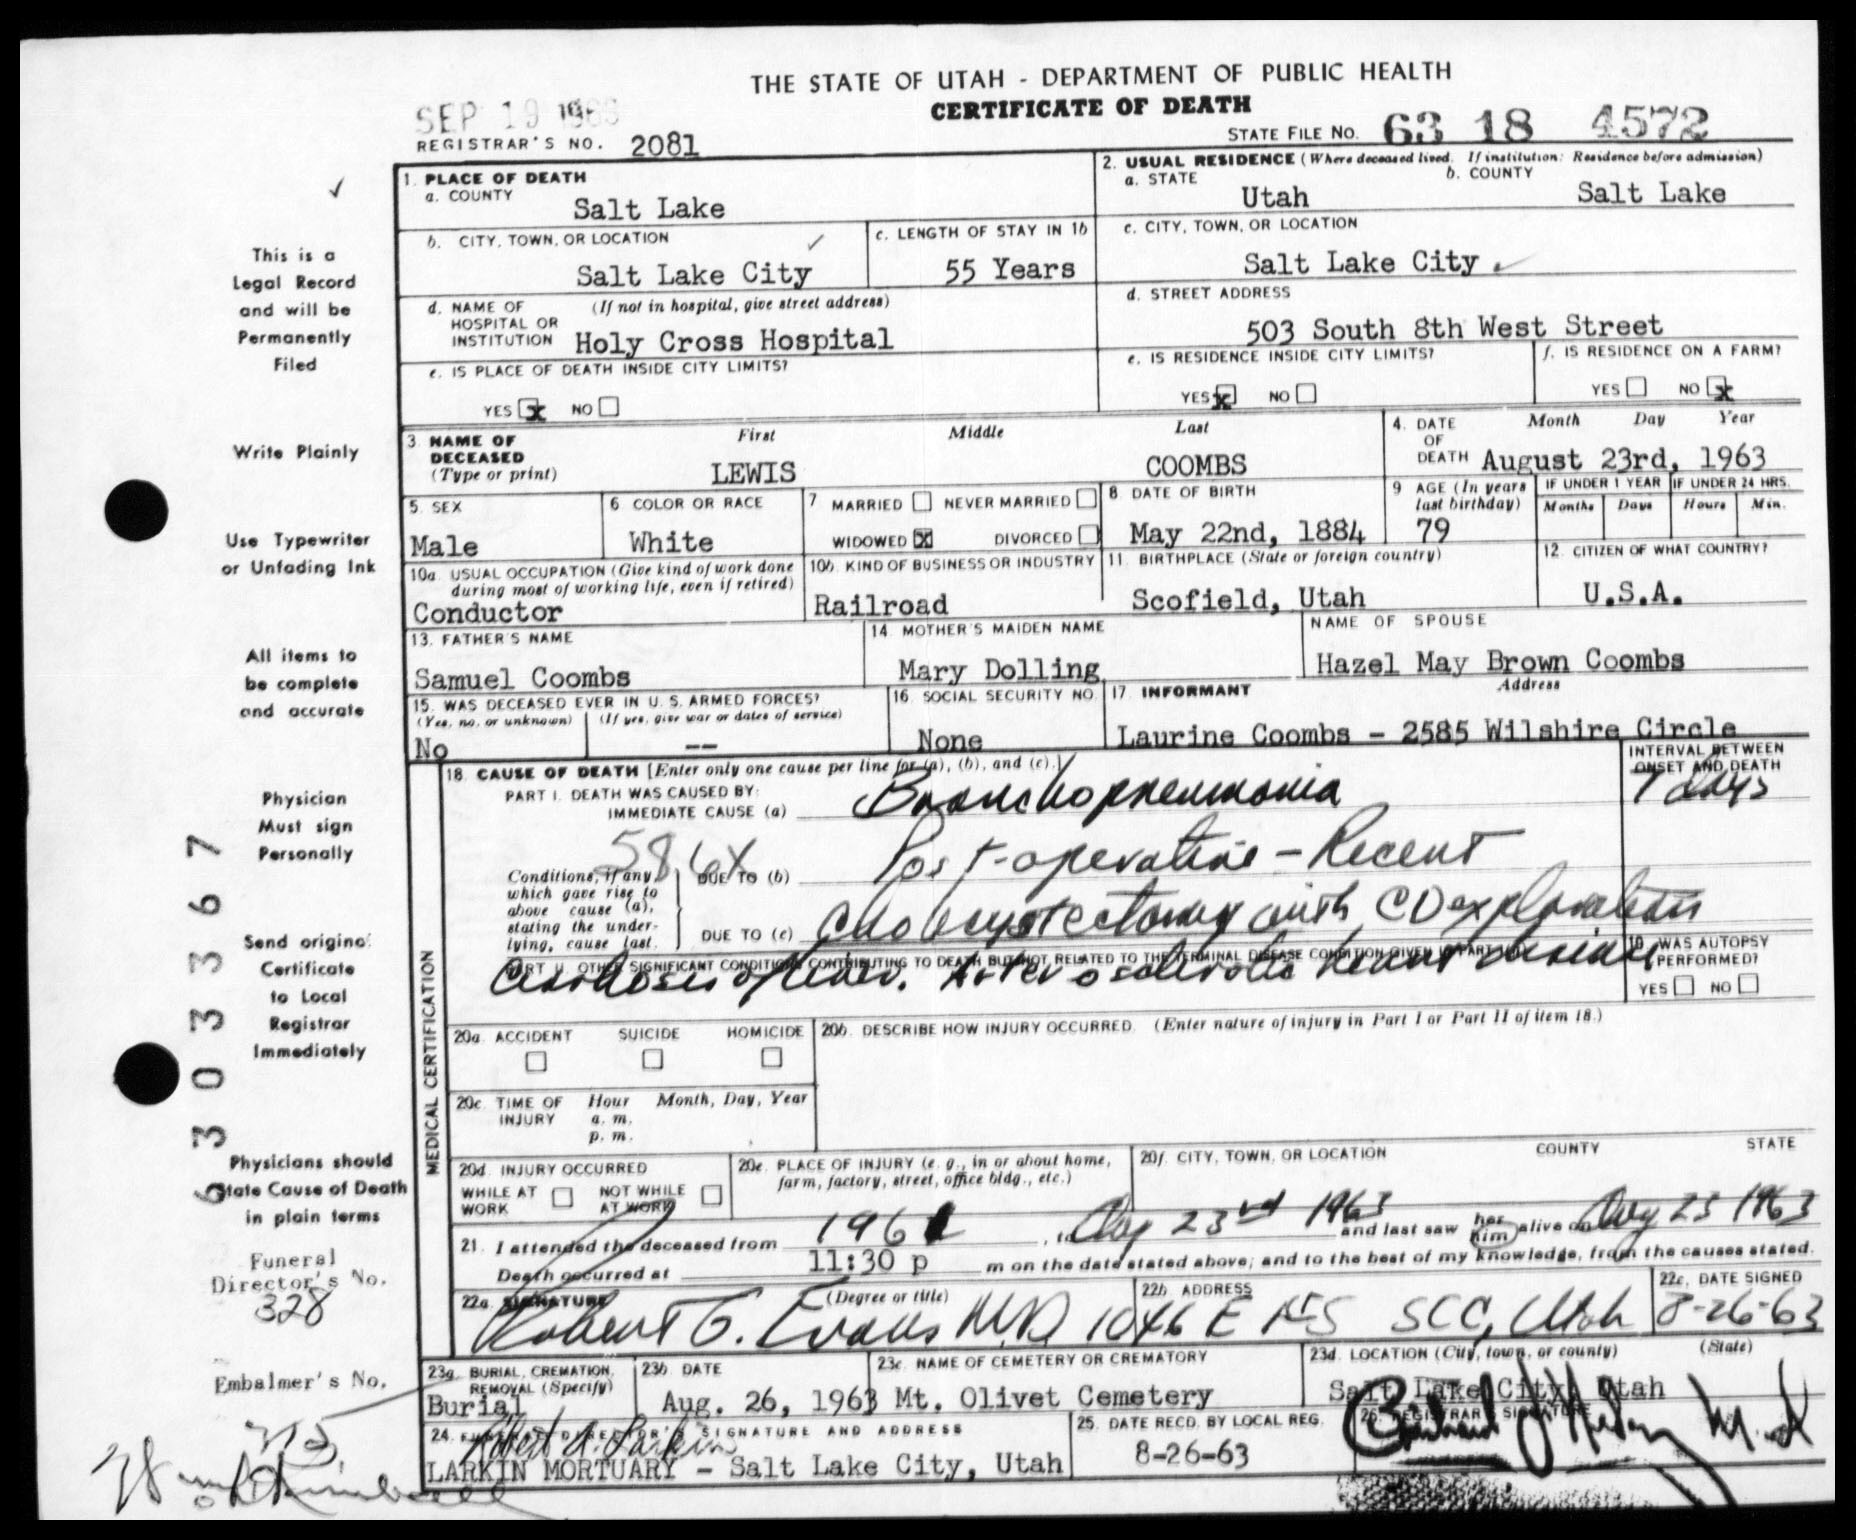 THE STATE OF UTAH - DEPARTMENT OF PUBLIC HEALTH
CERTIFICATE OF DEATH
SEP 19 1963
REGISTRAR'S NO. 2081
STATE FILE NO. 63 18 4572
1. PLACE OF DEATH
a. COUNTY
Salt Lake
2. USUAL RESIDENCE (Where deceased lived. If institution: Residence before admission)
a. STATE
Utah
b. COUNTY
Salt Lake
b. CITY, TOWN, OR LOCATION
Salt Lake City
c. LENGTH OF STAY IN 1b
55 Years
c. CITY, TOWN, OR LOCATION
Salt Lake City
d. NAME OF HOSPITAL OR INSTITUTION
(If not in hospital, give street address)
Holy Cross Hospital
d. STREET ADDRESS
503 South 8th West Street
e. IS PLACE OF DEATH INSIDE CITY LIMITS?
YES x NO
e. IS RESIDENCE INSIDE CITY LIMITS?
YES x NO
f. IS RESIDENCE ON A FARM?
YES NO x
3. NAME OF DECEASED
(Type or print)
First Middle Last
LEWIS COOMBS
4. DATE OF DEATH
Month Day Year
August 23rd, 1963
5. SEX
Male
6 COLOR OR RACE
White
7 MARRIED NEVER MARRIED
WIDOWED X DIVORCED
8. DATE OF BIRTH
May 22nd, 1884
9 AGE (In years last birthday)
79
IF UNDER 1 YEAR
Months Days
IF UNDER 24 HRS.
Hours Min.
10a. USUAL OCCUPATION (Give kind of work done during most of working life, even if retired)
Conductor
10b. KIND OF BUSINESS OR INDUSTRY
Railroad
11. BIRTHPLACE (State or foreign country)
Scofield, Utah
12. CITIZEN OF WHAT COUNTRY?
U.S.A.
13. FATHER'S NAME
Samuel Coombs
14. MOTHER'S MAIDEN NAME
Mary Dolling
NAME OF SPOUSE
Hazel May Brown Coombs
15. WAS DECEASED EVER IN U. S. ARMED FORCES?
(Yes, no, or unknown) (If yes, give war or dates of service)
No --
16. SOCIAL SECURITY NO.
None
17. INFORMANT
Address
Laurine Coombs - 2585 Wilshire Circle
MEDICAL CERTIFICATION
18. CAUSE OF DEATH [Enter only one cause per line for (a), (b), and (c).]
INTERVAL BETWEEN ONSET AND DEATH
PART I. DEATH WAS CAUSED BY:
IMMEDIATE CAUSE (a) Bronchopneumonia
7 days
Conditions, if any, which gave rise to above cause (a), stating the underlying, cause last.
DUE TO (b) Post-operative - Recent
DUE TO (c) Cholecystectomy with CD exploration
PART II. OTHER SIGNIFICANT CONDITIONS CONTRIBUTING TO DEATH BUT NOT RELATED TO THE TERMINAL DISEASE CONDITION GIVEN IN PART I(a)
Cirrhosis of liver. Arteriosclerotic heart disease
19. WAS AUTOPSY PERFORMED?
YES NO
20a. ACCIDENT SUICIDE HOMICIDE
20b. DESCRIBE HOW INJURY OCCURRED. (Enter nature of injury in Part I or Part II of item 18.)
20c. TIME OF INJURY
Hour Month, Day, Year
a. m.
p. m.
20d. INJURY OCCURRED
WHILE AT WORK NOT WHILE AT WORK
20e. PLACE OF INJURY (e. g., in or about home, farm, factory, street, office bldg., etc.)
20f. CITY, TOWN, OR LOCATION COUNTY STATE
21. I attended the deceased from 1961, to Aug 23rd 1963 and last saw her him alive on Aug 23 1963
Death occurred at 11:30 p m on the date stated above; and to the best of my knowledge, from the causes stated.
22a. SIGNATURE (Degree or title)
Robert G. Evans M.D.
22b. ADDRESS
1046 E 1st S SLC, Utah
22c. DATE SIGNED
8-26-63
23a. BURIAL, CREMATION, REMOVAL (Specify)
Burial
23b. DATE
Aug. 26, 1963
23c. NAME OF CEMETERY OR CREMATORY
Mt. Olivet Cemetery
23d. LOCATION (City, town, or county) (State)
Salt Lake City, Utah
24. FUNERAL DIRECTOR'S SIGNATURE AND ADDRESS
Robert A. Larkin
LARKIN MORTUARY - Salt Lake City, Utah
25. DATE RECD. BY LOCAL REG.
8-26-63
26. REGISTRAR'S SIGNATURE
This is a
Legal Record
and will be
Permanently
Filed
Write Plainly
Use Typewriter
or Unfading Ink
All items to
be complete
and accurate
Physician
Must sign
Personally
Send original
Certificate
to Local
Registrar
Immediately
Physicians should
State Cause of Death
in plain terms
Funeral
Director's No.
328
Embalmer's No.
6303367